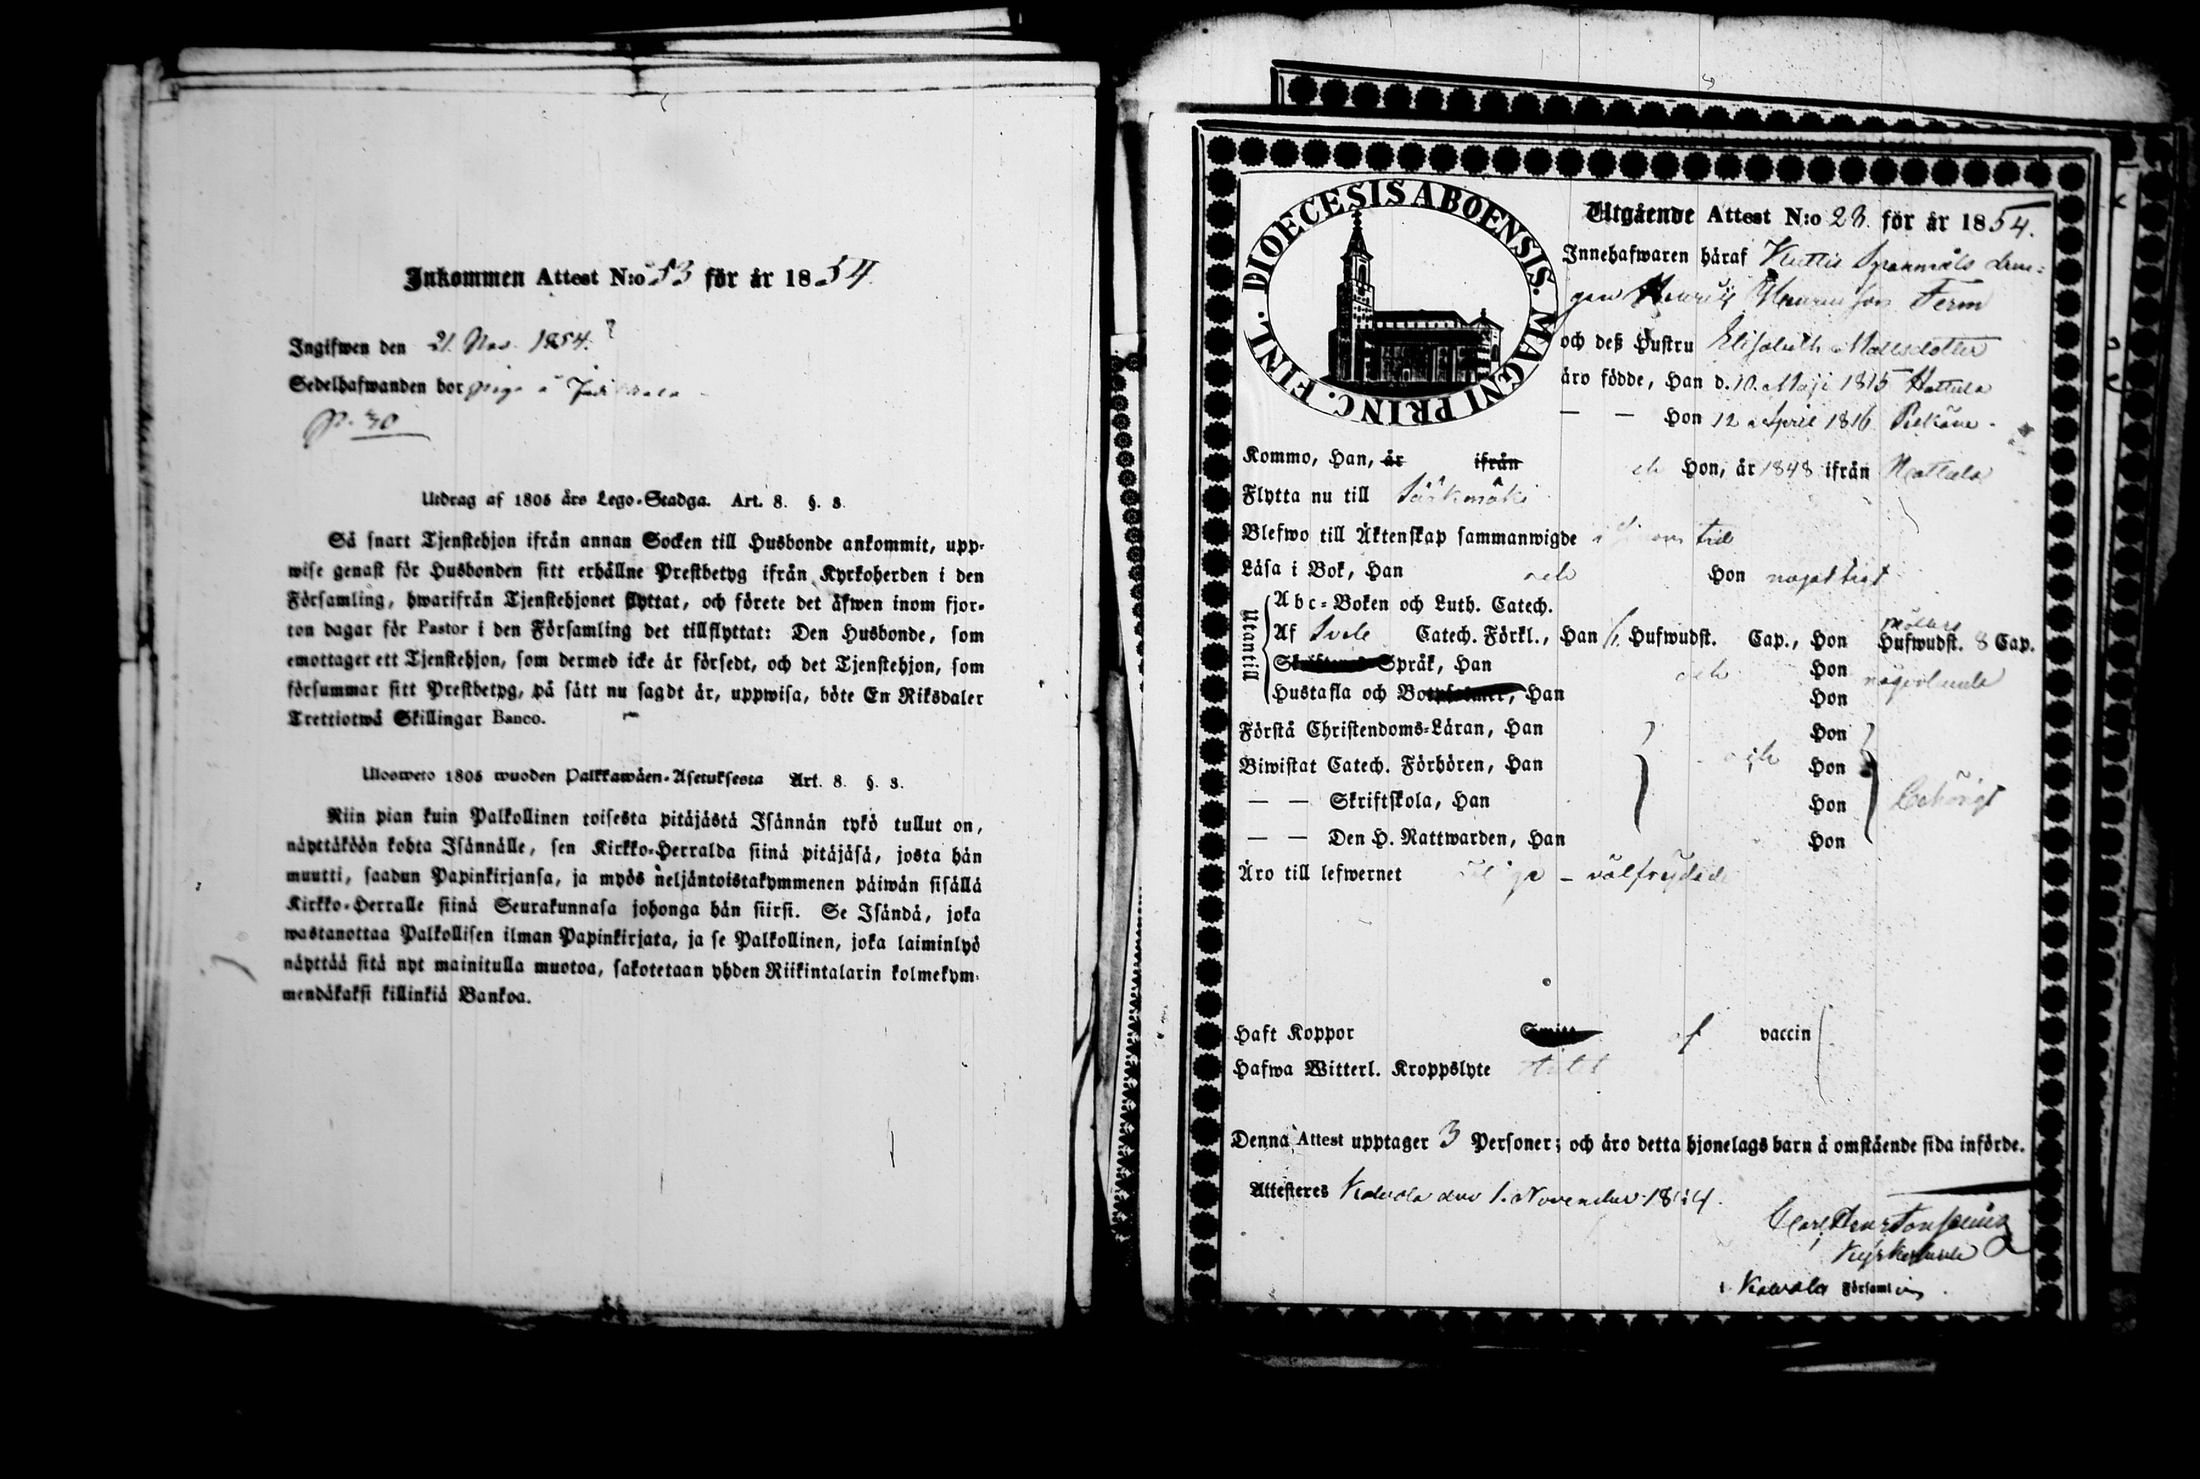 Inkommen Attest N:o 53 för år 1854.
Ingifwen den 21 Nov. 1854.
Sedelhafwanden bor piga å
p. 30
Utdrag af 1805 års Lego-Stadga. Art. 8. §. 3.
Så snart Tjenstehjon ifrån annan Socken till Husbonde ankommit, upp-
wise genast för Husbonden sitt erhållne Prestbetyg ifrån Kyrkoherden i den
Församling, hwarifrån Tjenstehjonet flyttat, och förete det äfwen inom fjor-
ton dagar för Pastor i den Församling det tillflyttat: Den Husbonde, som
emottager ett Tjenstehjon, som dermed icke är försedt, och det Tjenstehjon, som
försummar sitt Prestbetyg, på sätt nu sagdt är, uppwisa, böte En Riksdaler
Trettiotwå Skillingar Banco.
Ulosweto 1805 wuoden Palkkawäen-Asetuksesta Art. 8. §. 3.
Niin pian kuin Palkollinen toisesta pitäjästä Isännän tykö tullut on,
näyttäköön kohta Isännälle, sen Kirkko-Herralda siinä pitäjäsä, josta hän
muutti, saadun Papinkirjansa, ja myös neljäntoistakymmenen päiwän sisällä
Kirkko-Herralle siinä Seurakunnasa johonga hän siirsi. Se Isändä, joka
wastanottaa Palkollisen ilman Papinkirjata, ja se Palkollinen, joka laiminlyö
näyttää sitä nyt mainitulla muotoa, sakotetaan yhden Riikintalarin kolmekym-
mendäkaksi killinkiä Bankoa.
DIOECESIS ABOENSIS. MAGNI PRINC. FINL.
Utgående Attest N:o 23. för år 1854.
Innehafwaren häraf dren-
gen Henrik Henriksson Term
och deß Hustru Elisabeth Mattsdotter
äro födde, Han d. 10 Maji 1815 Hattula
— — Hon 12 April 1816 Pelkäne.
Kommo, Han, år ifrån och Hon, år 1848 ifrån Hattula
Flytta nu till Sääksmäki
Blefwo till Äktenskap sammanwigde i sinom tid
Läsa i Bok, Han och Hon nöjaktigt
Utantill
Abc-Boken och Luth. Catech.
Af Sveb. Catech. Förkl., Han Hufwudst. Cap., Hon Hufwudst. 8 Cap.
Språk, Han och Hon någorlunda
Hustafla och Botpsalmer, Han Hon
Förstå Christendoms-Läran, Han Hon
Biwistat Catech. Förhören, Han och Hon
— — Skriftskola, Han Hon behörigt
— — Den H. Nattwarden, Han Hon
Äro till lefwernet välfrejdade
Haft Koppor af vaccin
Hafwa Witterl. Kroppslyte
Denna Attest upptager 3 Personer; och äro detta hjonelags barn å omstående sida införde.
Attesteres Kalvola den 1. November 1854.
Carl
Kyrkoherde
i Kalvola Församling